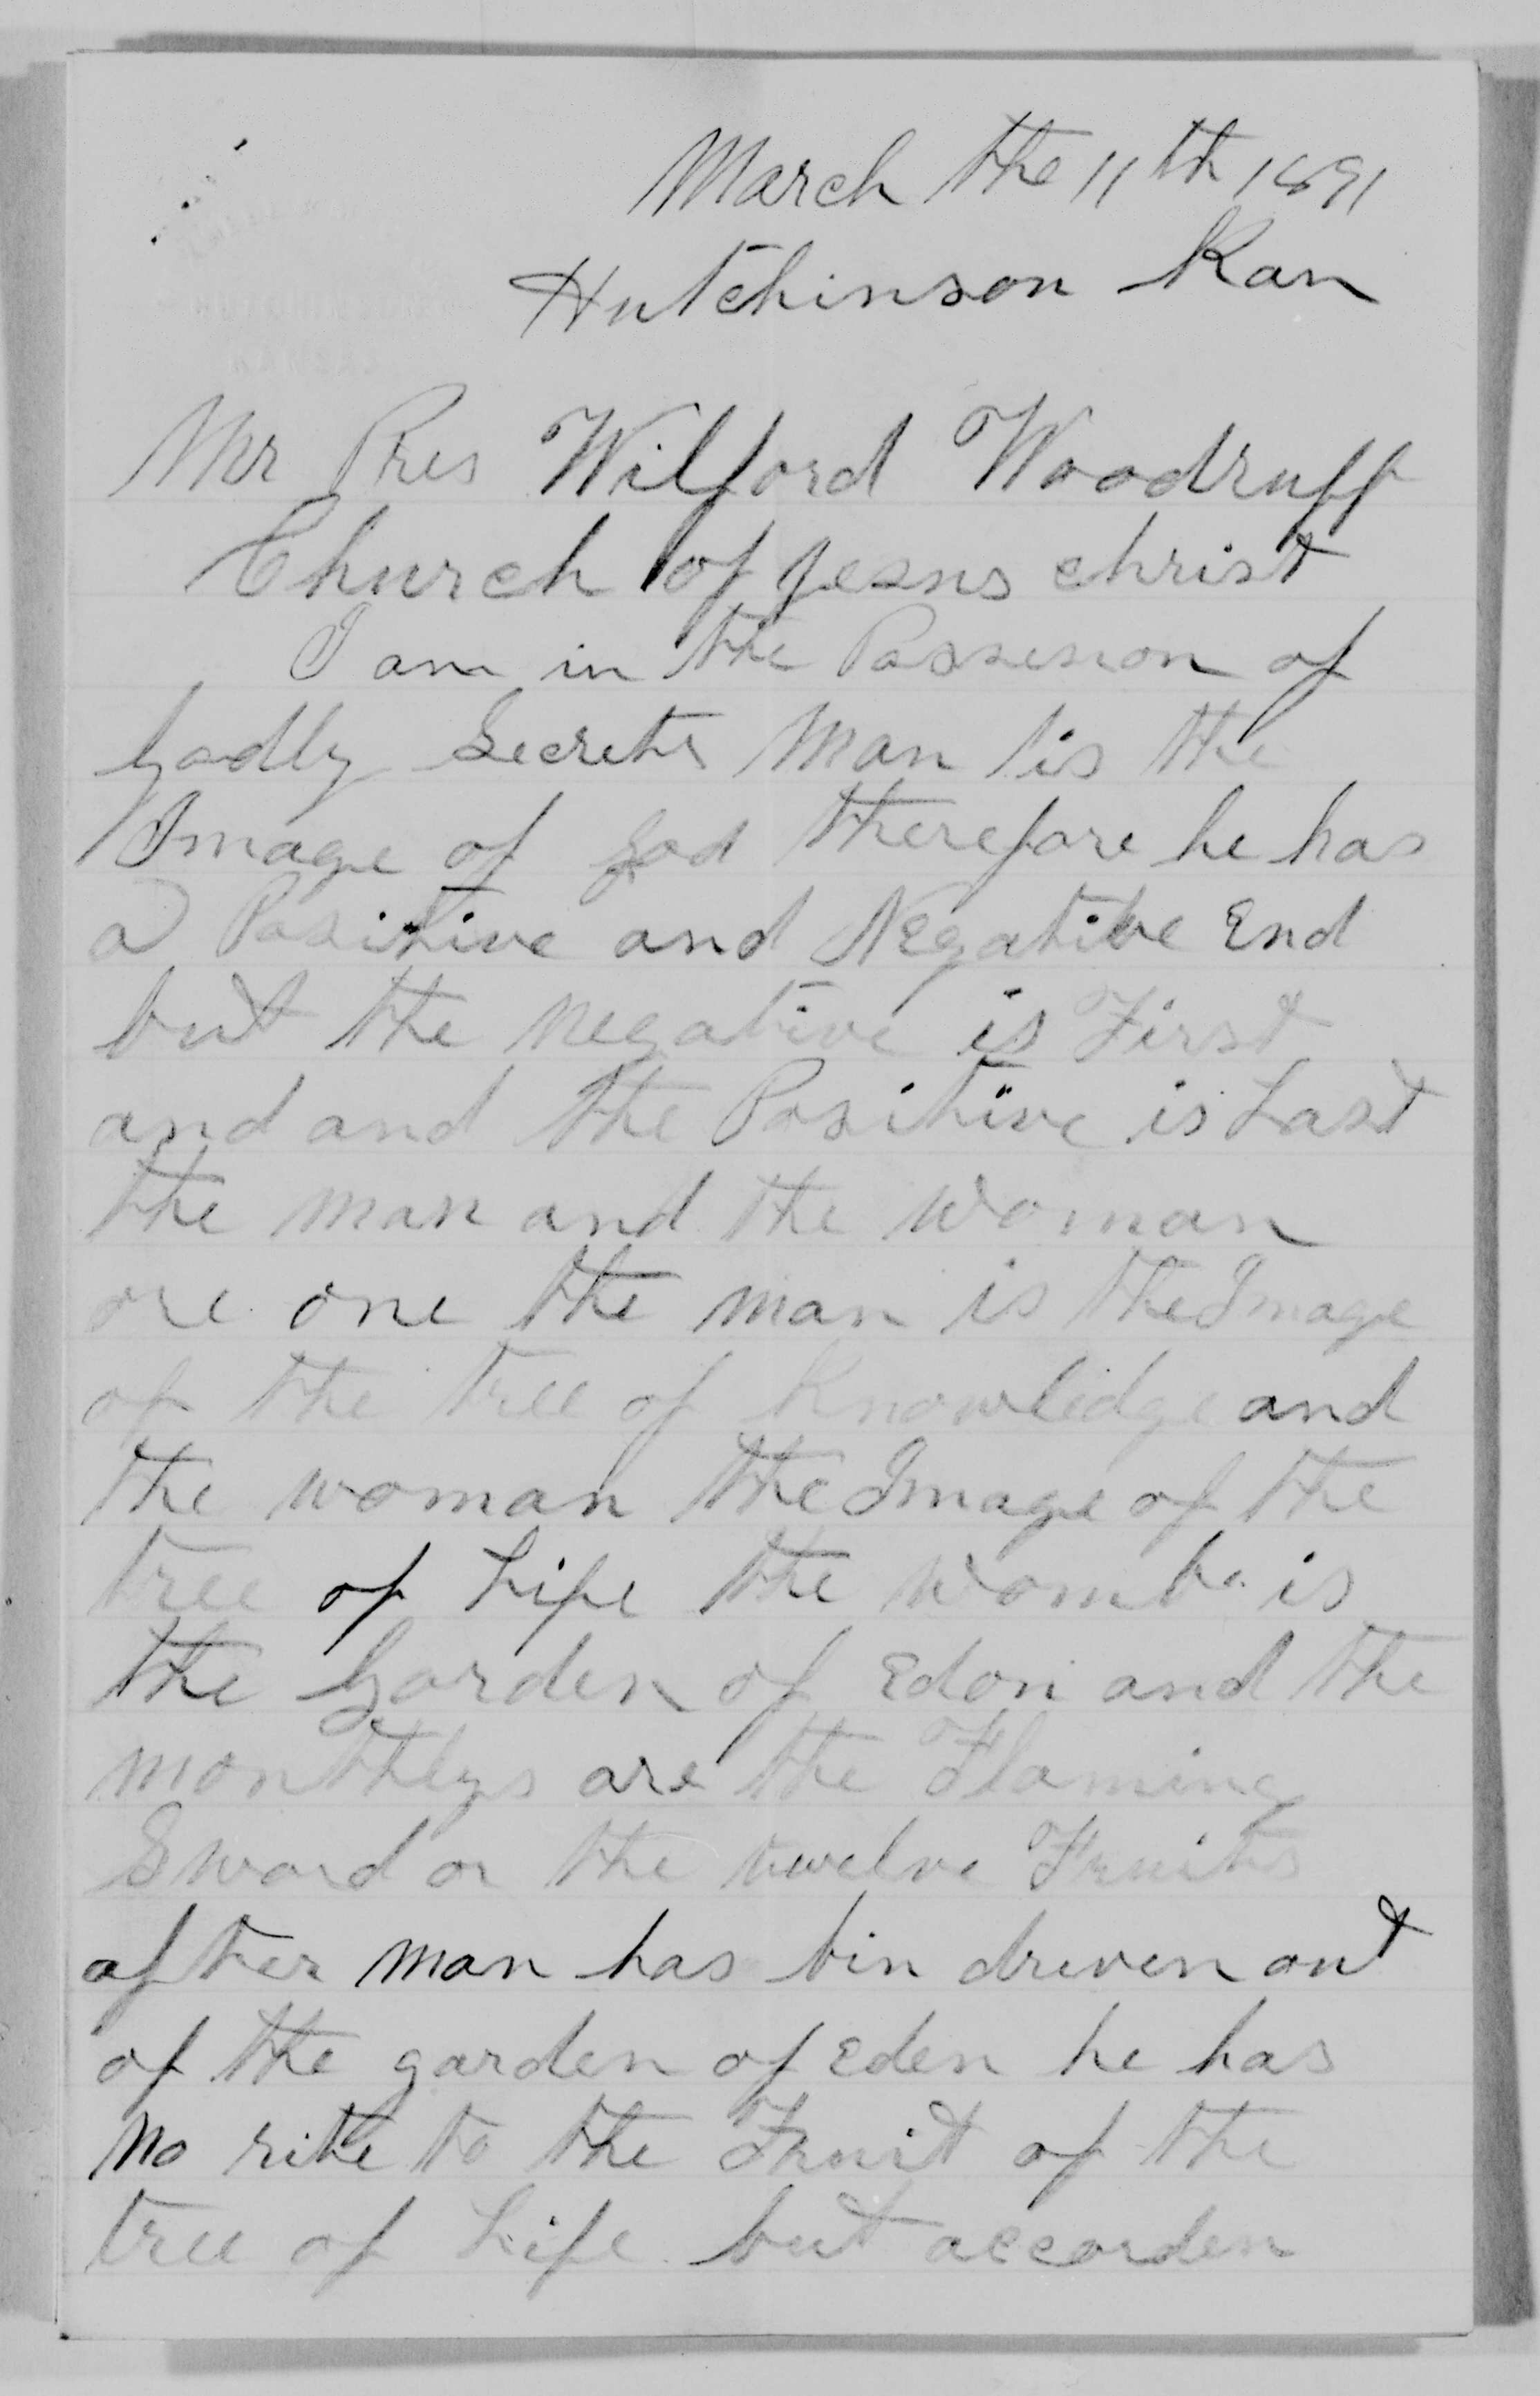 March the 11th 1891
Hutchinson Kan
Mr Pres Wilford Woodruff
Church of Jesus christ
I am in the Possesion of
Godly Secrets Man is the
Image of God therefore he has
a Positive and Negative End
but the negative is First
and and the Positive is Last
the man and the woman
are one the man is the Image
of the tree of Knowlidge and
the woman the Image of the
tree of Life the womb is
the Garden of Edon and the
monthlys are the Flaming
Sword or the twelve Fruits
after man has bin driven out
of the garden of Eden he has
no rite to the Fruit of the
tree of Life but accorden